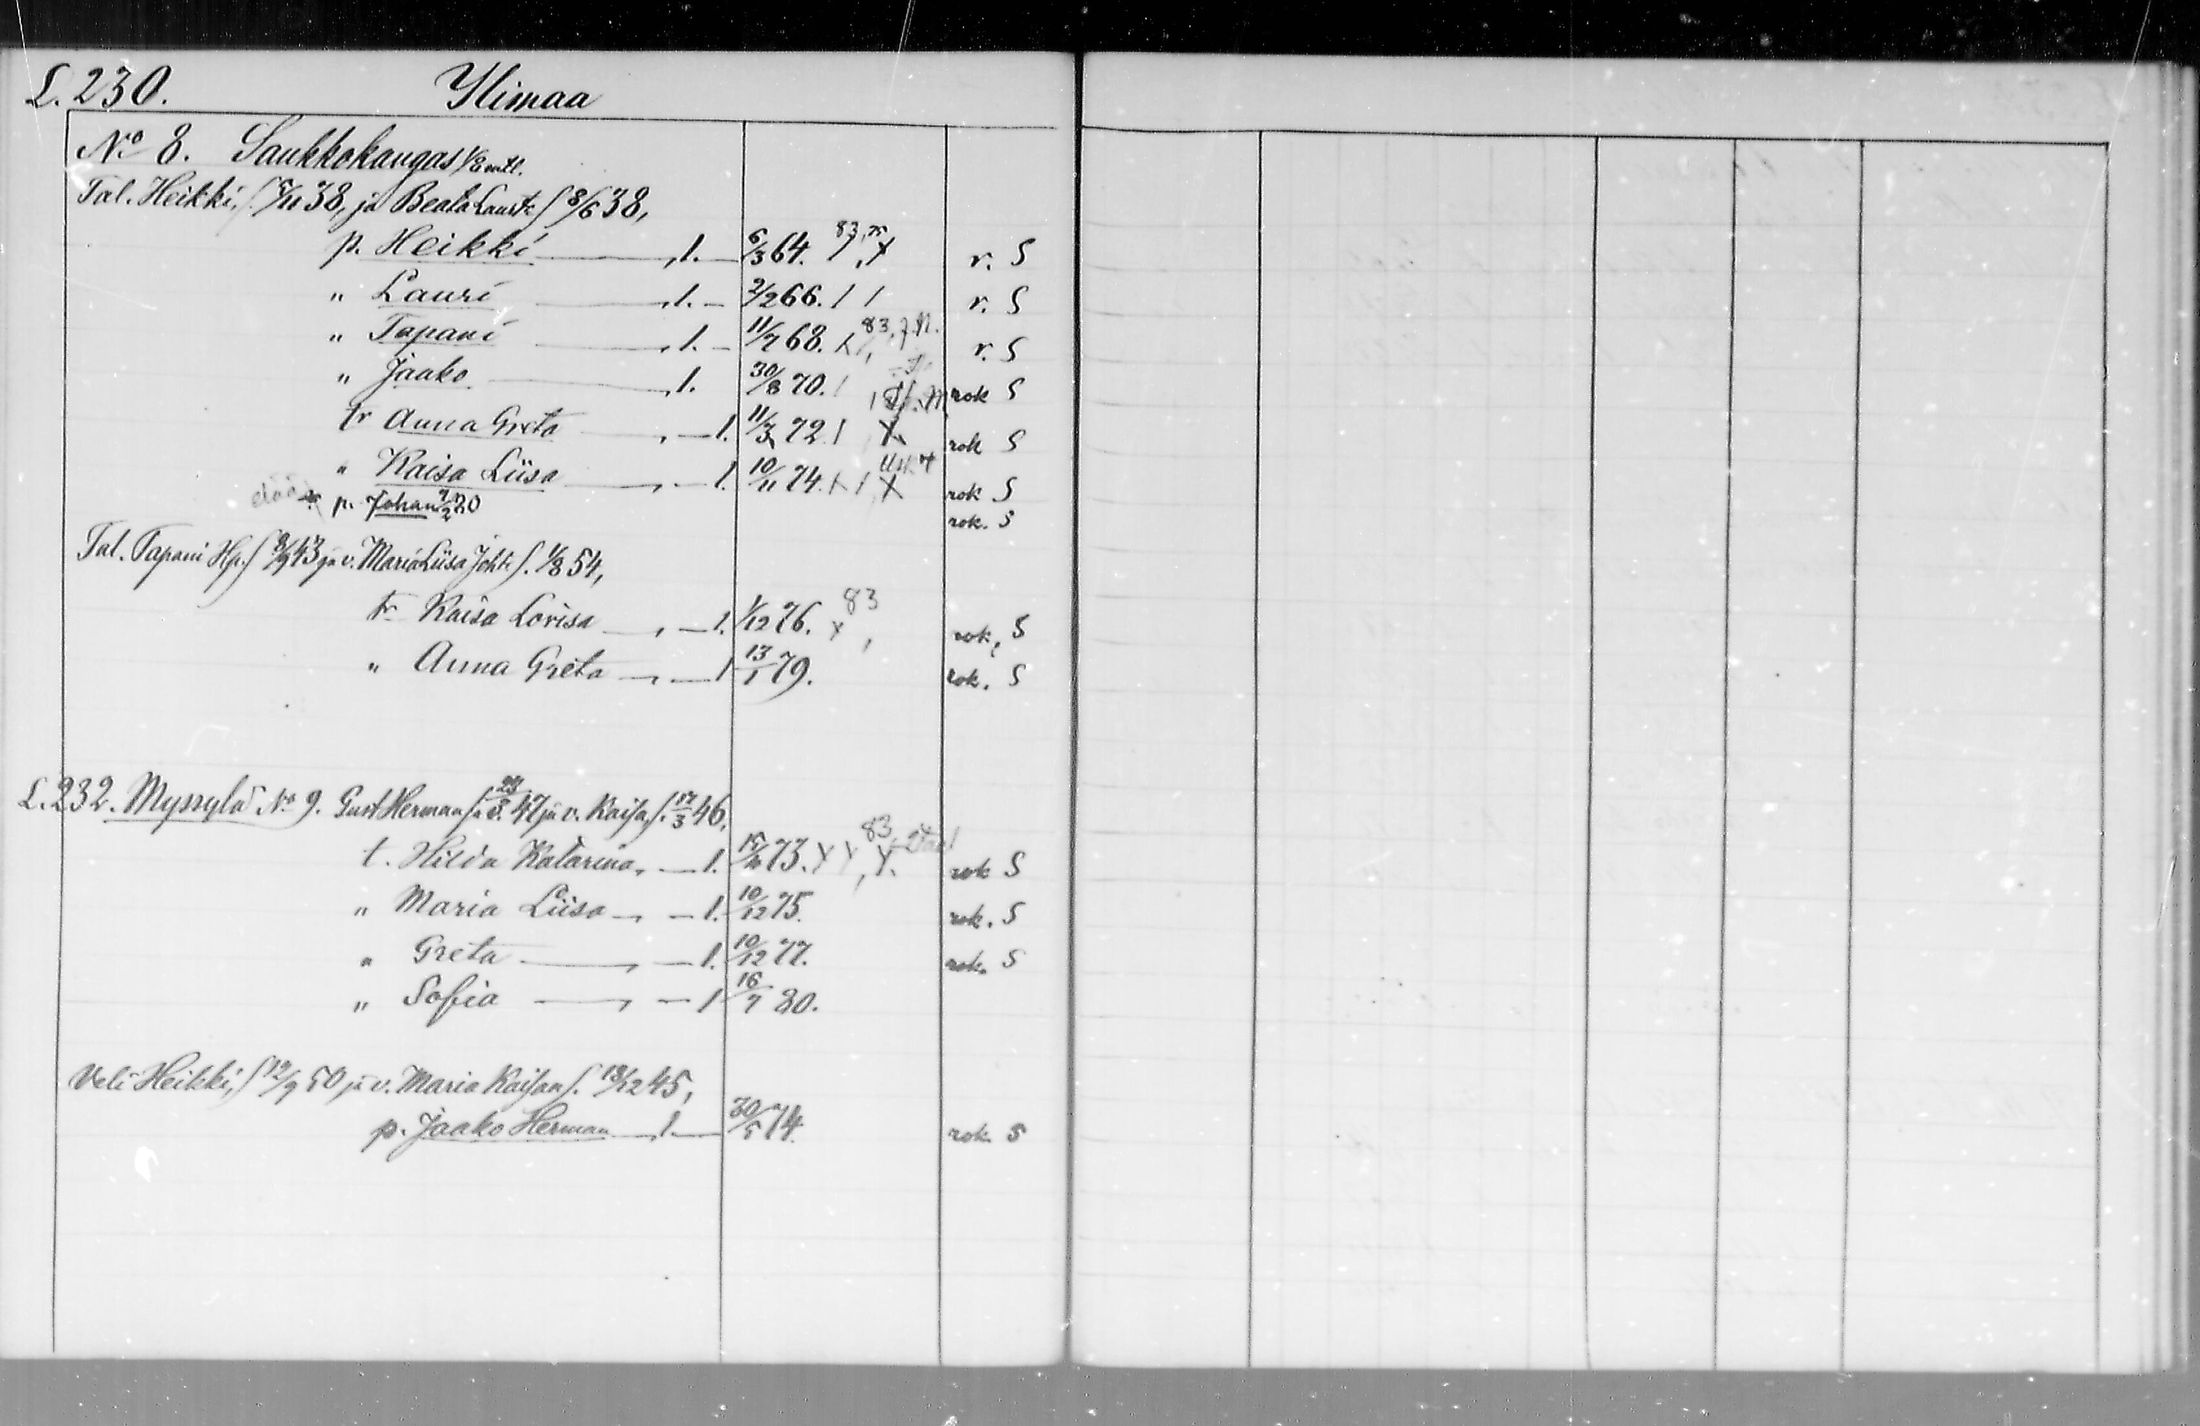 L. 230. Ylimaa
No 8. Saukkokangas 1/8 mtl.
Tal. Heikki, s. 5/11 38, ja Beata Laurt. s. 8/6 38,
p. Heikki 1. 6/3 64. 83, r. S
" Lauri 1. 2/2 66. / / r. S
" Tapani 1. 11/7 68. 83, r. S
" Jaako 1. 30/8 70. / rok S
tr Anna Greta 1. 11/3 72. / X rok S
" Kaisa Liisa 1. 10/11 74. X / X rok S
elää p. Johan 80 rok. S
Tal. Tapani Hp. s. 8/9 43 ja v. Maria Liisa Joht. s. 1/8 54,
tr Kaisa Lovisa 1. 1/12 76. x 83 rok, S
" Anna Greta 1 13/1 79. rok. S
L. 232. Myssylä No 9. Gust Herman s. 47 ja v. Kaisa, s. 17/3 46,
t. Hilda Katarina, 1. 15/10 73. X X, X. 83 rok S
" Maria Liisa 1. 10/12 75. rok. S
" Greta 1. 10/12 77. rok. S
" Sofia 1 16/7 80.
Veli Heikki, s. 12/9 50 ja v. Maria Kaisa s. 18/12 45,
p. Jaako Herman 1. 30/5 74. rok. S